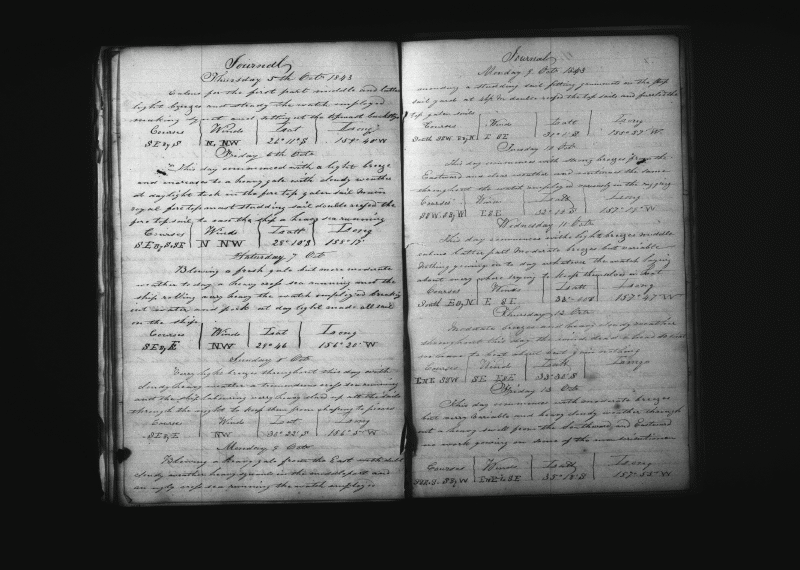 Journal
Thursday 5th Octr 1843
Calms for the first part middle and latter
light breezes and steady the watch employed
making and setting up the topmast backstays
Courses Winds Latt Long
SEByS N, NW 26° 11" S 159° 40" W
Friday 6th Octr
This day commenced with a light breeze
and increases to a heavy gale with cloudy weather
at daylight took in the fore top galen sail main
royal fore top mast studding sail double reefed the
fore top sail to ease the ship a heavy sea running
Courses Winds Latt Long
SEByS&SE N NW 28° 10" S 158° 12"
Saturday 7 Octr
Blowing a fresh gale but more moderate
weather to day a heavy cross sea running and the
ship rolling very heavy the watch employed breaking
out water and pork at day light made all sail
on the ship
Courses Winds Latt Long
SEByE NW 29° 46 156° 20" W
Sunday 8 Octr
Very light breeze throughout this day with
cloudy heavy weather a tremendous cross sea running
and the ship labouring very heavy all the sails
through the night to keep them from chafing to pieces
Course Winds Latt Long
SEByE NW 30° 22" S W
Monday 9 Octr
Blowing a heavy gale from the East with
cloudy weather heavy in the middle part and
an ugly cross sea running the watch employed
Journal
Monday 9 Octr 1843
mending a studding sail fitting on the top
sail yard at 4 PM double reefed the top sails and furled the
top galen sails
Courses Winds Latt Long
South SSW E SE S 158° 57" W
Tuesday 10 Octr
This day commences with strong breezes from the
Eastward and clear weather and continues the same
throughout the watch employed variously in the rigging
Courses Winds Latt Long
SSW ESE 32° 10" S 157° W
Wednesday 11 Octr
This day commences with light breezes middle
calms latter part moderate breezes but variable
Nothing going on to day whatever the watch laying
about very whare trying to keep themselves in heat
Courses Winds Latt Long
South EByN E SE 157° 47" W
Thursday 12 Octr
Moderate breezes and heavy cloudy weather
throughout this day the wind dead a head so that
we have to beat about but gain nothing
Courses Wind Latt Longo
ENE SSW SE ESE 33° 30" S
Friday 13 Octr
This day commences with moderate breezes
but very variable and heavy cloudy weather through
out a heavy swell from the Southward and Eastward
no work going on
Courses Winds Latt Long
SByW ENE & SE 35° 12" S 157° 55" W